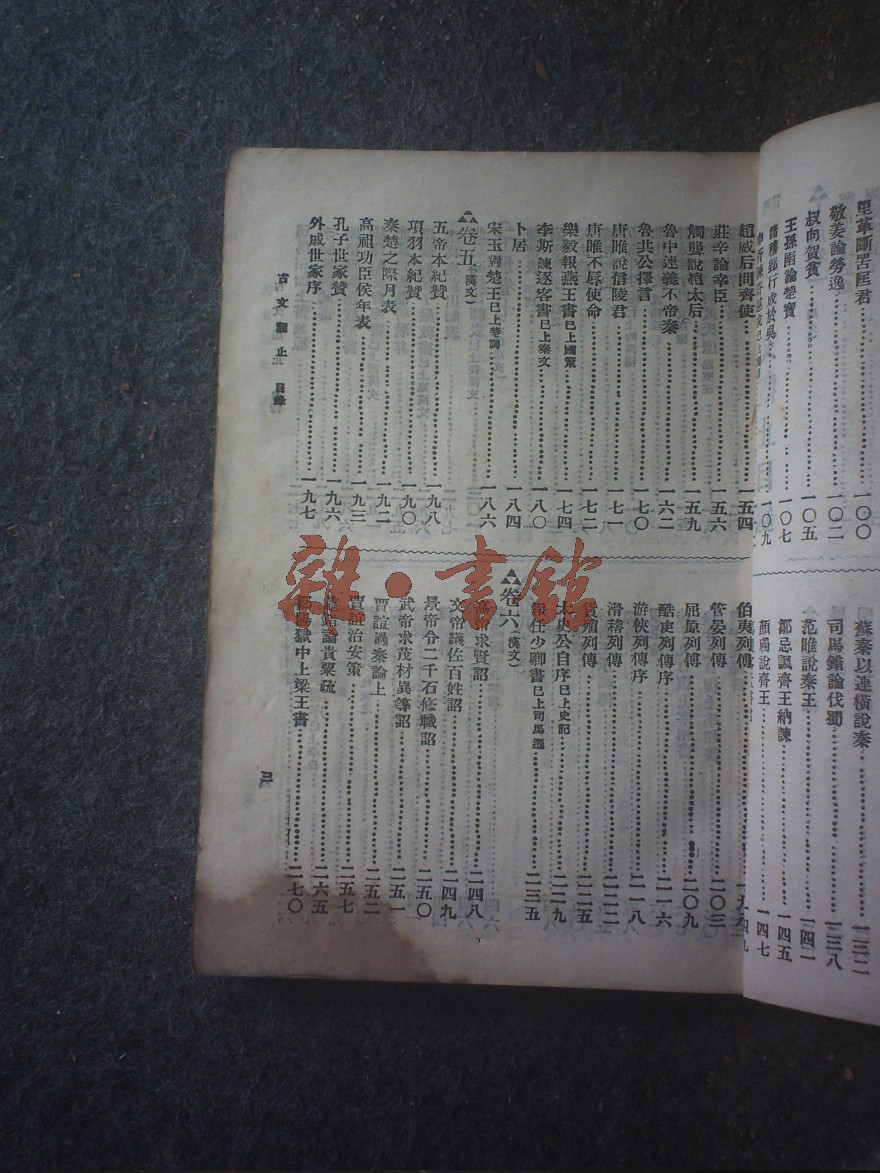 里革斷罟匡君 一〇〇
敬姜論勞逸 一〇二
叔向賀貧 一〇五
王孫圉論楚寶 一〇七
諸稽郢行成於吳 一〇九
蘇秦以連橫說秦 一三二
司馬錯論伐蜀 一三八
范雎說秦王 一四二
鄒忌諷齊王納諫 一四五
顏斶說齊王 一四七
趙威后問齊使 一五四
莊辛論幸臣 一五六
觸讋說趙太后 一五九
魯仲連義不帝秦 一六二
魯共公擇言 一七〇
唐雎說信陵君 一七一
唐雎不辱使命 一七二
樂毅報燕王書已上國策 一七四
李斯諫逐客書已上秦文 一八〇
卜居 一八四
宋玉對楚王已上楚詞 一八六
卷五(漢文)
五帝本紀贊 一九八
項羽本紀贊 一九〇
秦楚之際月表 一九二
高祖功臣侯年表 一九三
孔子世家贊 一九六
外戚世家序 一九七
伯夷列傳
管晏列傳 二〇三
屈原列傳 二〇九
酷吏列傳序 二一六
游俠列傳序 二一八
滑稽列傳 二二二
貨殖列傳 二二五
太史公自序已上史記 二二九
報任少卿書已上司馬遷 二三五
卷六(漢文)
高帝求賢詔 二四八
文帝議佐百姓詔 二四九
景帝令二千石修職詔 二五〇
武帝求茂材異等詔 二五一
賈誼過秦論上 二五二
賈誼治安策 二五七
鼂錯論貴粟疏 二六五
鄒陽獄中上梁王書 二七〇
古文觀止 目錄
三
雜·書館